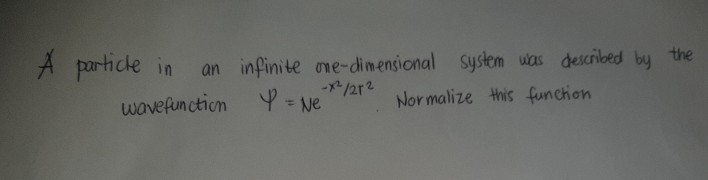 A particle in an infinite one-dimensional system was described by the
wavefunction Ψ = Ne^{-x²/2Γ²}. Normalize this function